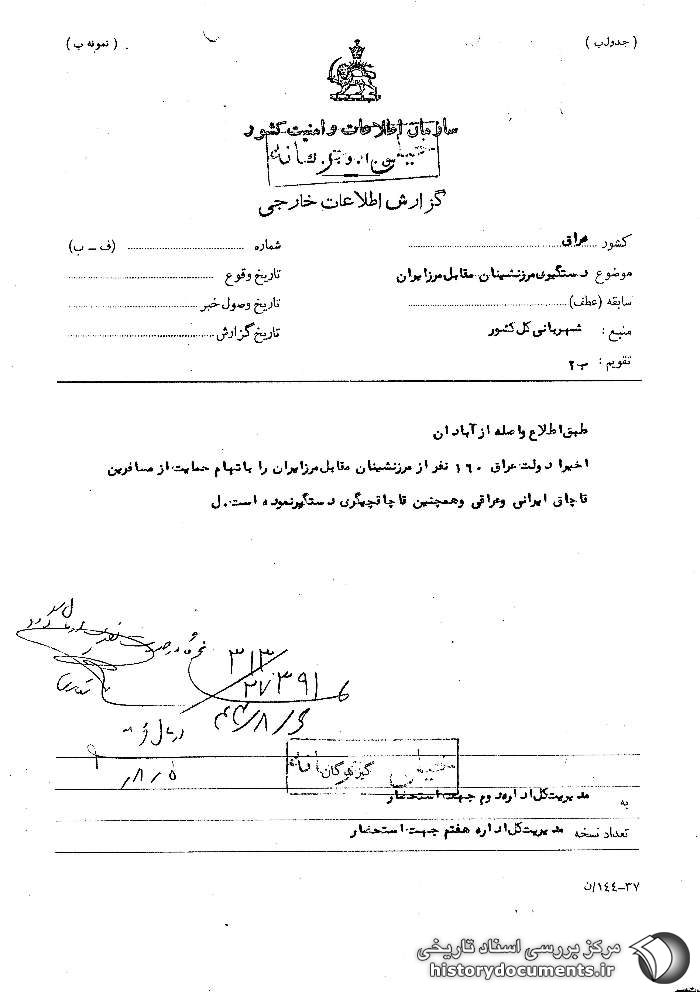 ( جدول ب )
( نمونه ب )
سازمان اطلاعات و امنیت کشور
گزارش اطلاعات خارجی
کشور عراق
شماره (ف - ب)
موضوع دستگیری مرزنشینان مقابل مرز ایران
تاریخ وقوع
سابقه (عطف)
تاریخ وصول خبر
منبع : شهربانی کل کشور
تاریخ گزارش
تقویم : ب ۲
طبق اطلاع واصله از آبادان
اخیرا دولت عراق ۱۶۰ نفر از مرزنشینان مقابل مرز ایران را باتهام حمایت از مسافرین
قاچاق ایرانی وعراقی وهمچنین قاچاقچیگری دستگیر نموده است . ل
۳۱۳
به مدیریت کل اداره دوم جهت استحضار
تعداد نسخه مدیریت کل اداره هفتم جهت استحضار
۳۷-۱۴۴/ن
مرکز بررسی اسناد تاریخی
historydocuments.ir